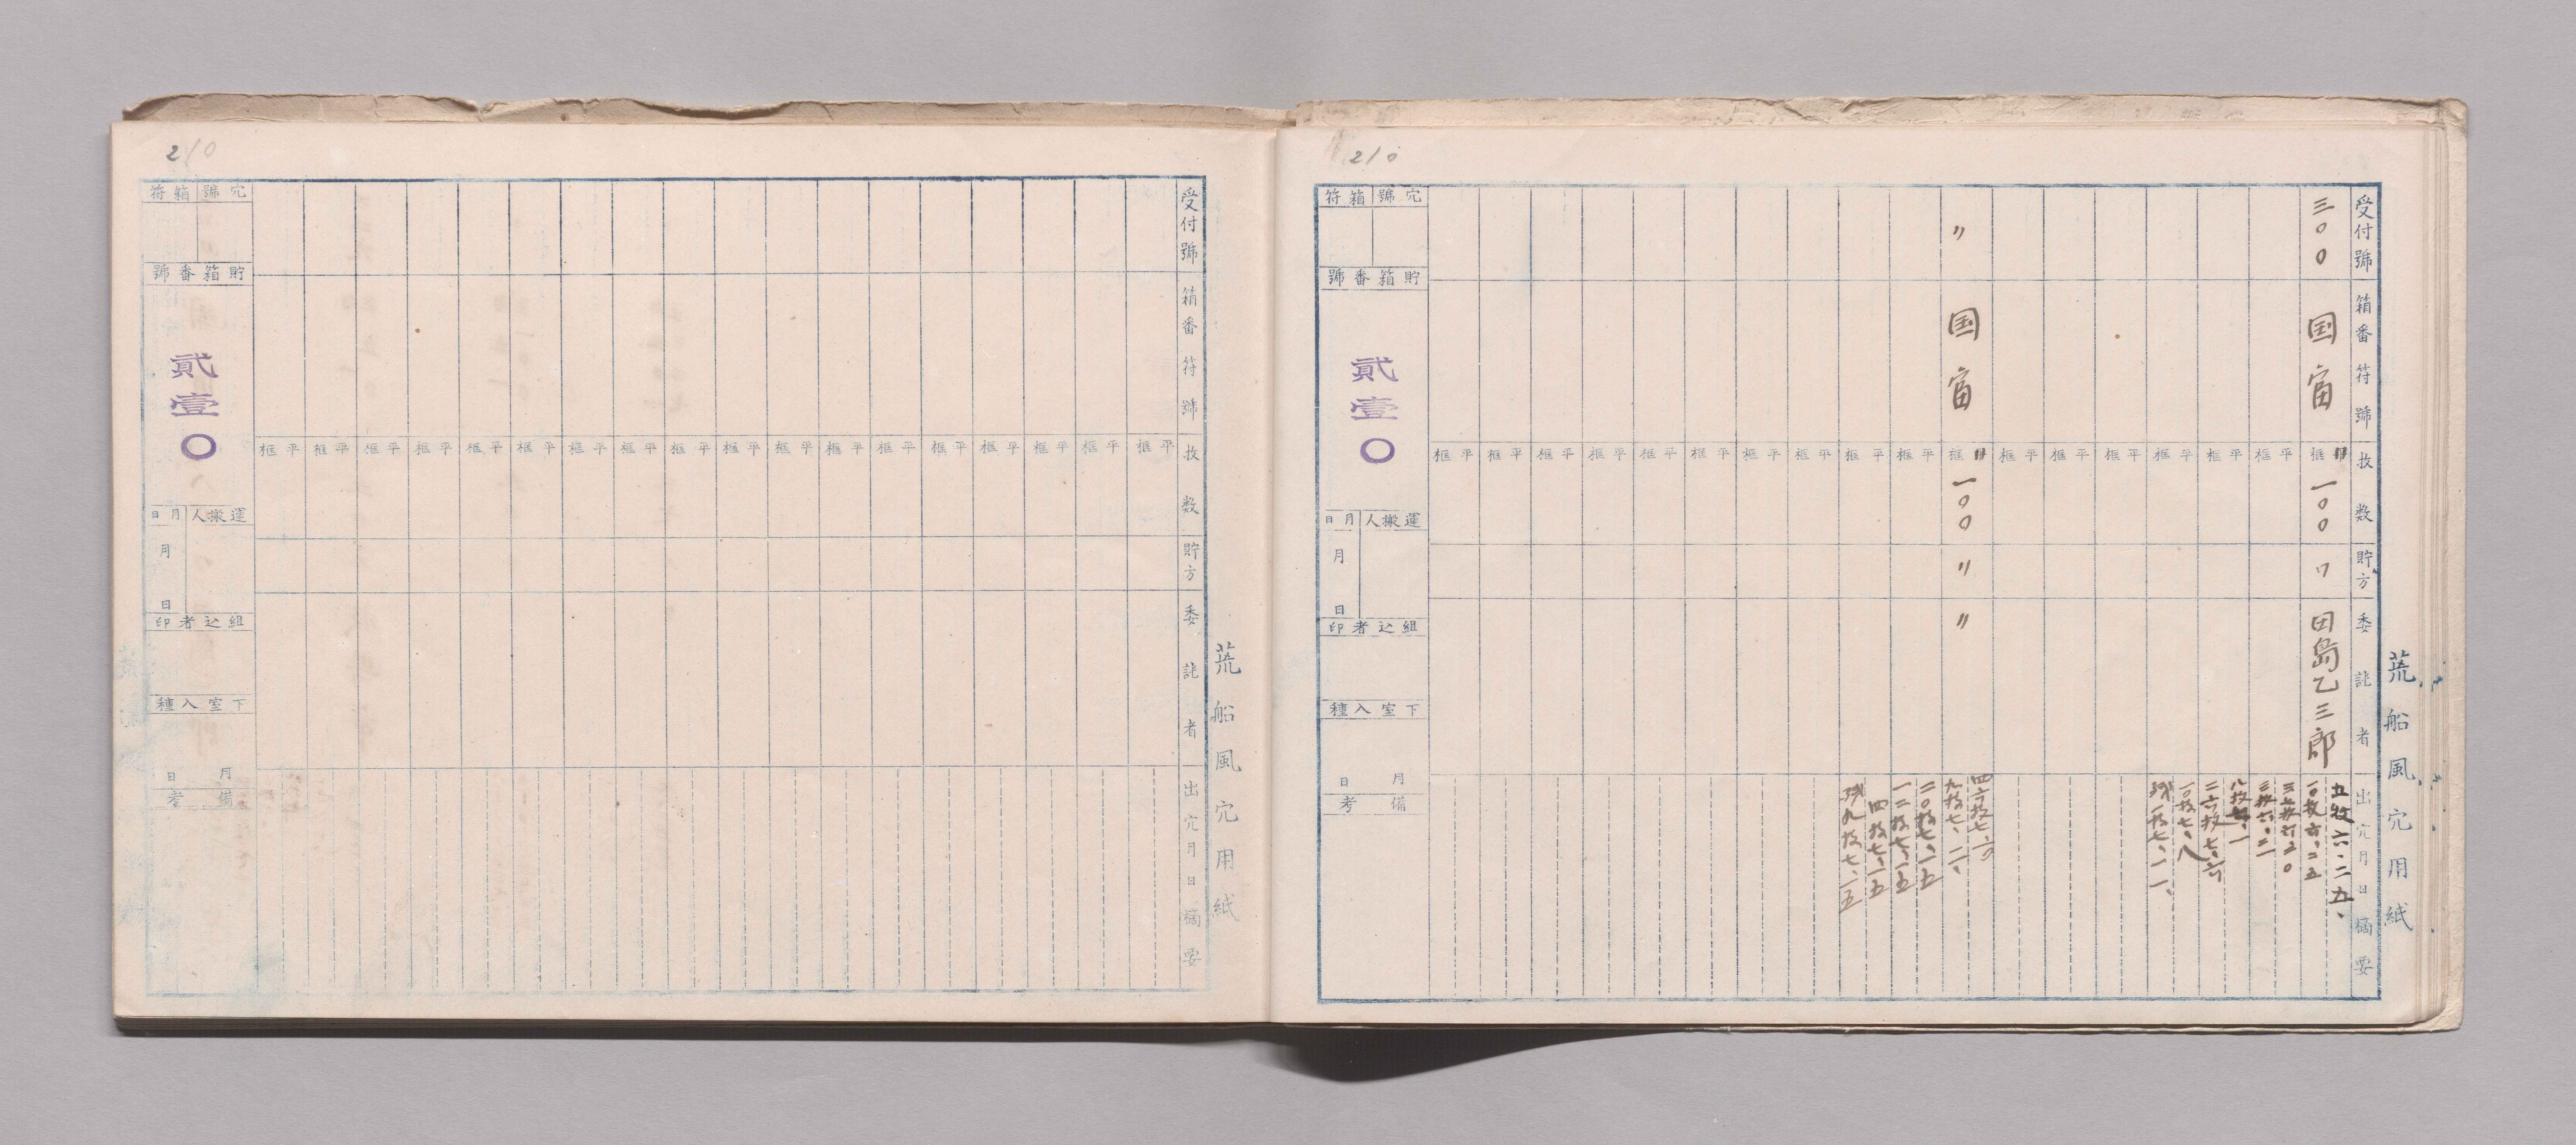 210
荒船風穴用紙
受付號
箱番符號
枚数
貯方
委託者
出穴月日摘要
三〇〇
国富
框
一〇〇
田島乙三郎
五枚六、二五、
一〇枚六、二五
八枚七、一
二六枚七、六
一〇枚七、八
残一枚七、一一、
〃
国富
框
一〇〇
〃
〃
四六枚七、六
九枚七、一一、
二〇枚七、一五
一二枚七、一五
四枚七、一五
残九枚七、一五
平框 平框 平框 平框 平框 平框 平框 平框 平框 平框 平框 平框 平框 平框 平框 平框
穴號
箱符
貯箱番號
貳壹〇
運搬人
月日
月 日
組込者印
下室入種
月 日
備考
210
荒船風穴用紙
受付號
箱番符號
枚数
貯方
委託者
出穴月日摘要
平框 平框 平框 平框 平框 平框 平框 平框 平框 平框 平框 平框 平框 平框 平框 平框 平框 平框
穴號
箱符
貯箱番號
貳壹〇
運搬人
月日
月 日
組込者印
下室入種
月 日
備考